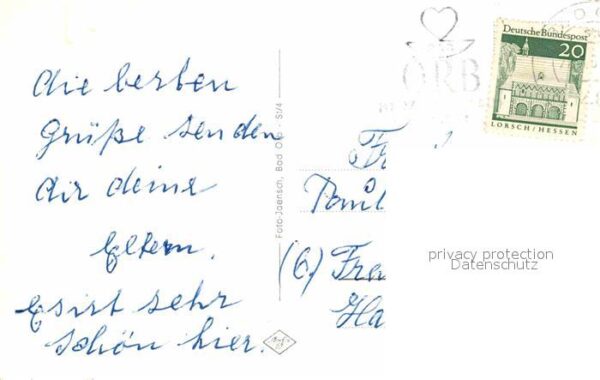 die besten
Grüße senden
dir deine
Eltern.
Es ist sehr
schön hier.
Foto-Jaensch, Bad Orb - St/4
ORB
Deutsche Bundespost
20
LORSCH/HESSEN
Fr
Paul
(6) Fra
Ha
privacy protection
Datenschutz